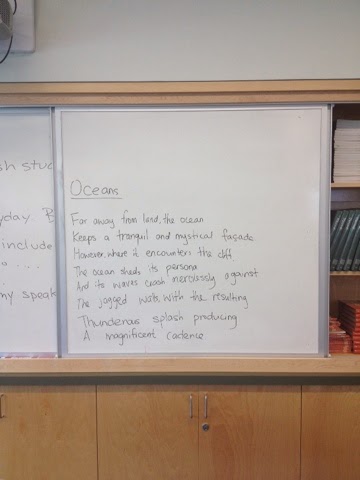 sh stud
yday. B
include
a ...
my speak
Oceans
Far away from land, the ocean
Keeps a tranquil and mystical façade
However, where it encounters the cliff
The ocean sheds its persona
And its waves crash mercilessly against
The jagged walls, with the resulting
Thunderous splash producing
A magnificent cadence